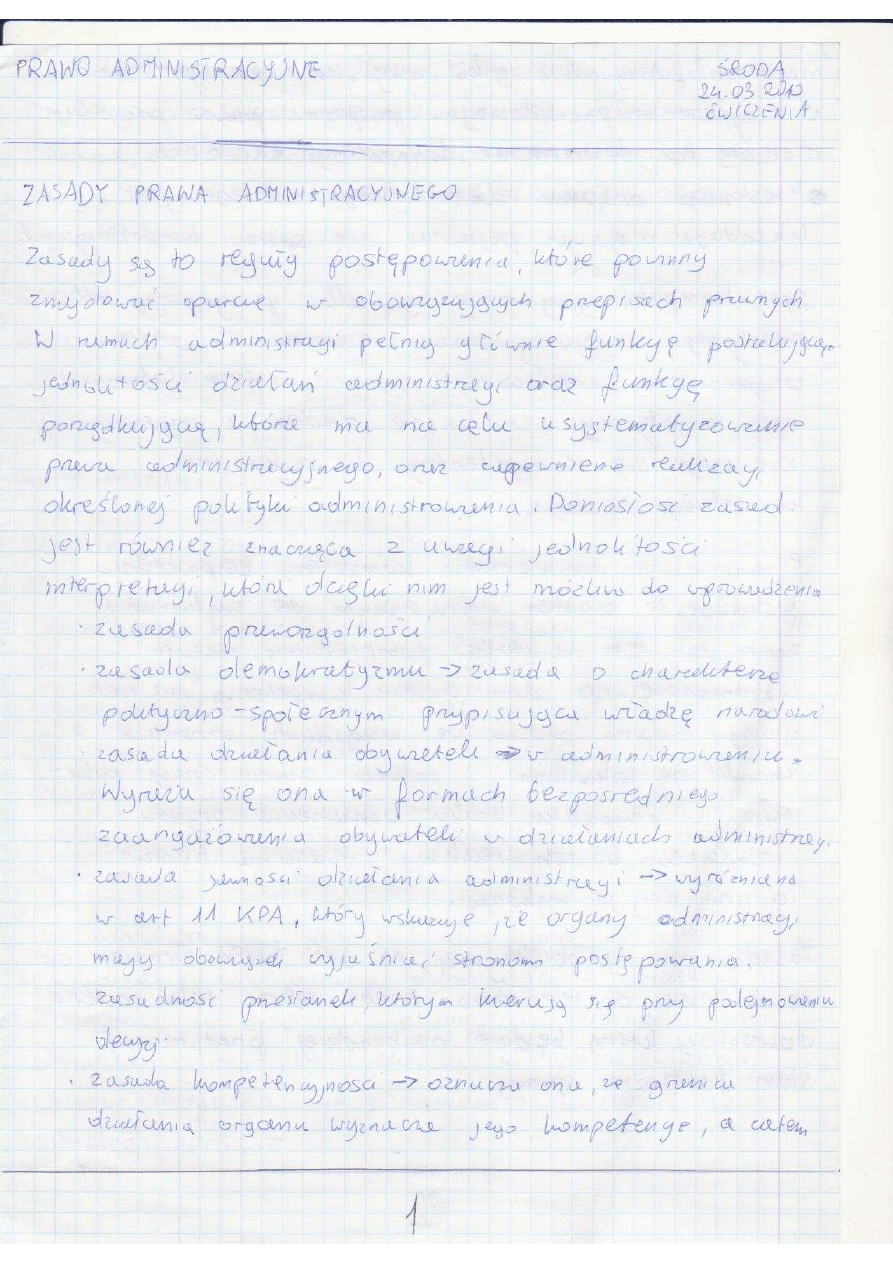 PRAWO ADMINISTRACYJNE
ŚRODA
24.03.2010
ĆWICZENIA
ZASADY PRAWA ADMINISTRACYJNEGO
Zasady są to reguły postępowania, które powinny
znajdować oparcie w obowiązujących przepisach prawnych.
W ramach administracji pełnią głównie funkcję postulującą
jednolitości działań administracji oraz funkcję
porządkującą, która ma na celu usystematyzowanie
prawa administracyjnego, oraz zapewnienie realizacji
określonej polityki administrowania. Doniosłość zasad
jest również znacząca z uwagi jednolitości
interpretacji, która dzięki nim jest możliwa do wprowadzenia
· zasada praworządności
· zasada demokratyzmu → zasada o charakterze
polityczno-społecznym przypisująca władzę narodowi
· zasada działania obywateli → w administrowaniu.
Wyraża się ona w formach bezpośredniego
zaangażowania obywateli w działaniach administracji.
· zasada jawności działania administracji → wyróżniana
w art 11 KPA, który wskazuje, że organy administracji
mają obowiązek wyjaśniać stronom postępowania
zasadność przesłanek, którym kierują się przy podejmowaniu
decyzji.
· zasada kompetencyjności → oznacza ona, że granice
działania organu wyznacza jego kompetencje, a zatem
1